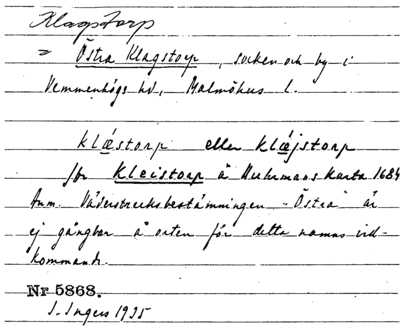 Klagstorp
= Östra Klagstorp, socken och by i
Vemmenhögs hd, Malmöhus l.
klæstorp eller klæjstorp
jfr Kleistorp å Buhrmans karta 1684
Anm. Väderstrecksbestämningen "Östra" är
ej gångbar å orten för detta namns vid-
kommande.
Nr 5868.
I. Ingers 1935